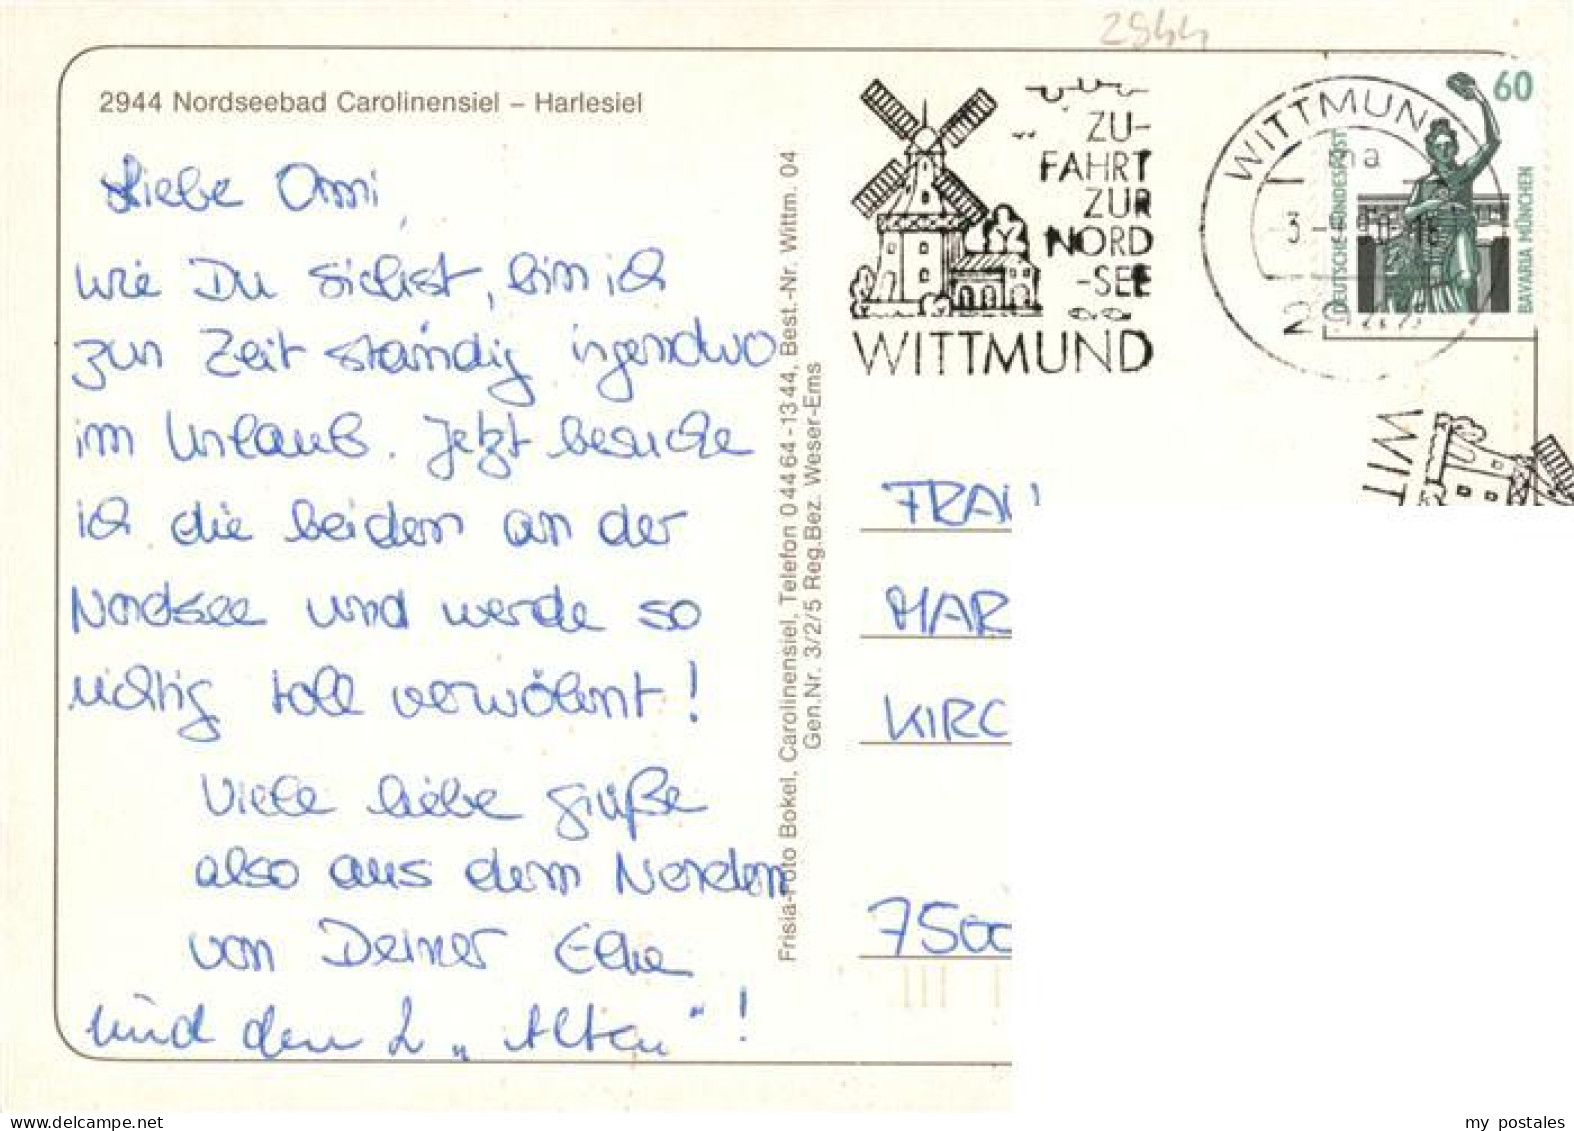 2944
2944 Nordseebad Carolinensiel – Harlesiel
Liebe Omi,
wie Du siehst, bin ich
zur Zeit ständig irgendwo
im Urlaub. Jetzt besuche
ich die beiden an der
Nordsee und werde so
richtig toll verwöhnt!
Viele liebe Grüße
also aus dem Norden
von Deiner Elke
und den 2 „Alten"!
Frisia-Foto Bokel, Carolinensiel, Telefon 0 44 64 - 13 44, Best.-Nr. Wittm. 04
Gen.Nr. 3/2/5 Reg.Bez. Weser-Ems
ZU-
FAHRT
ZUR
NORD
-SEE
WITTMUND
WITTMUND
ma
60
DEUTSCHE BUNDESPOST
BAVARIA MÜNCHEN
WIT
FRAU
MAR
KIRC
7500
my postales